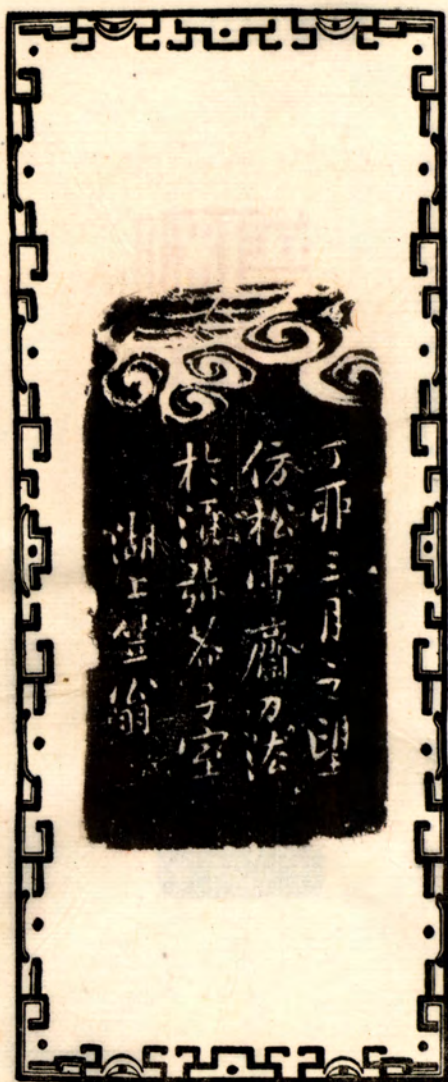 丁卯三月之望
仿松雪齋刀法
於涵弥茶子室
湖上笠翁